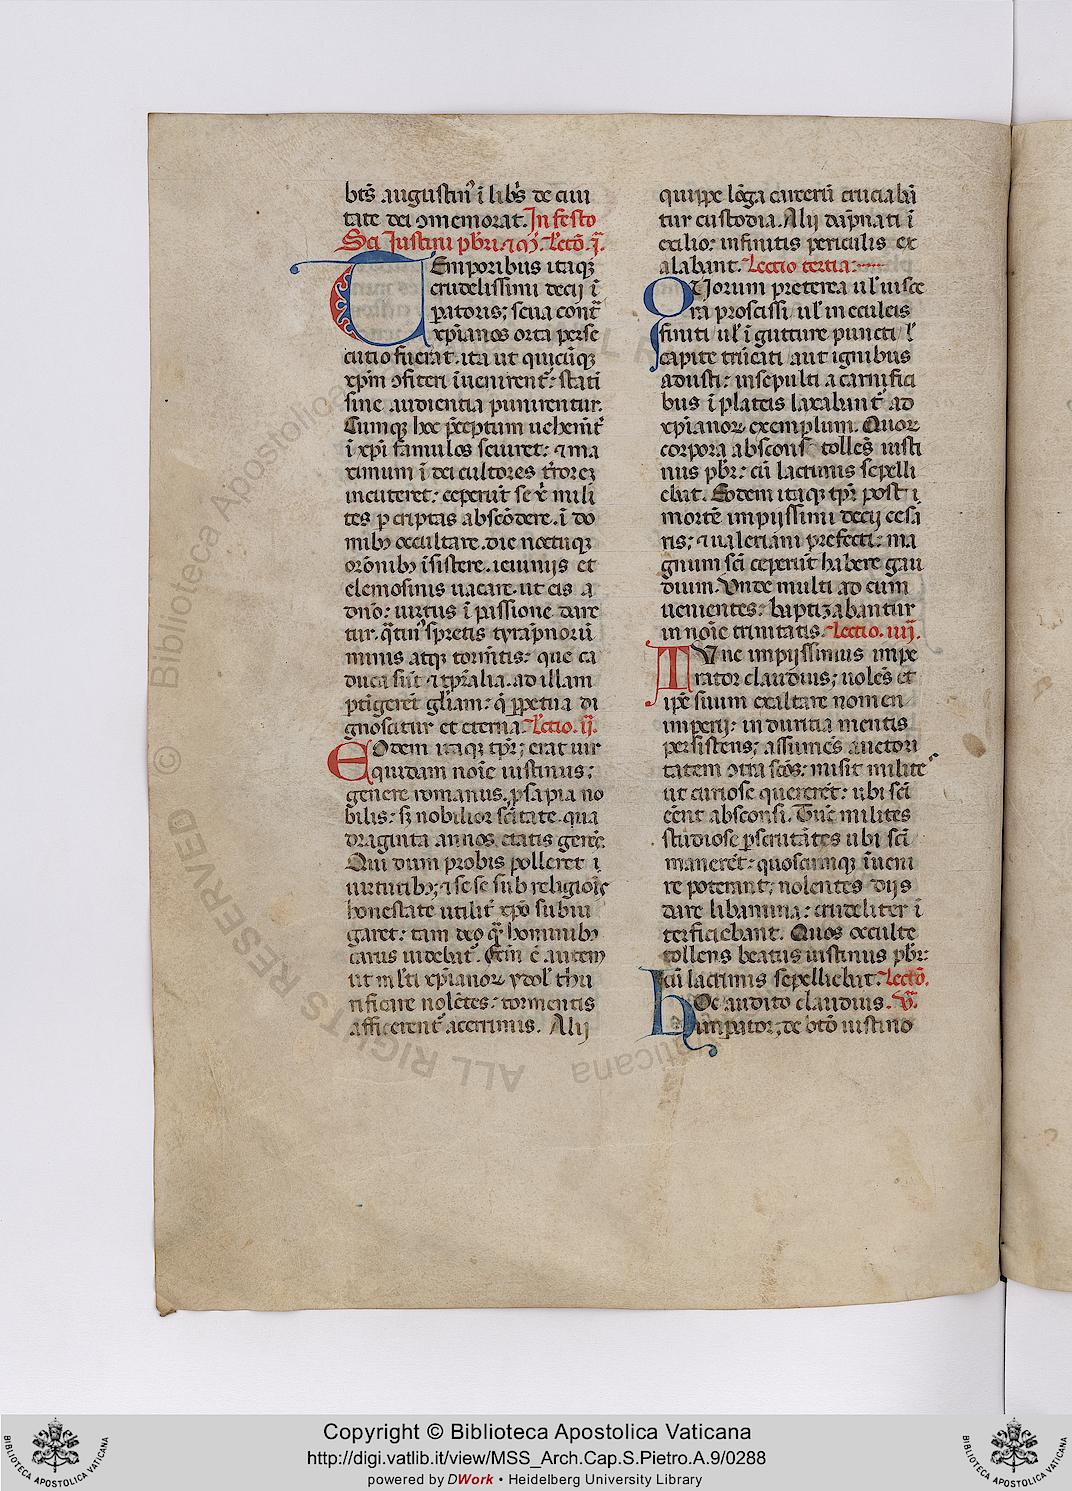 btš augustin᷒ ī libš de ciui
tate dei ɔmemorat. In festo
Sci Iustini pbri. ⁊ m̄. Lectō. ī.
Temporibus itaqꝫ
crudelissimi decij ī
ꝑatoris; seua contᷓ
xp̄ianos orta perse
cutio fuerat. ita ut quicūqꝫ
xp̄m ɔfiteri īuenirent᷑: statī
sine audientia punirentur.
Cumqꝫ hoc p̄ceptum uehem̄t᷑
ī xp̄i famulos seuiret: ⁊ ma
ximum ī dei cultores t̄rorez
incuteret: ceperūt se xp̄i mili
tes ꝑ criptas abscōdere. ī do
mibꝫ occultare. die noctuqꝫ
orōnibꝫ īsistere. ieiunijs et
elemosinis uacare. ut eis a
dn̄o: uirtus ī passione dare
tur. q̄tin᷒ spretis tyrāpnorū
minis atqꝫ torm̄tis: que ca
duca sūt ⁊ tp̄ralia. ad illam
ꝑtīgerēt gl̄iam: q̄ ꝑpetua di
gnoscitur et eterna. Lectio. ij.
Eodem itaqꝫ tp̄r; erat uir
quidam noīe iustinus;
genere romanus. ꝓsapia no
bilis: sꝫ nobilior sc̄itate. qua
draginta annos etatis gerēs.
Qui dum probis polleret ī
uirtutibꝫ; ⁊ sese sub religiōis
honestate utilit᷑ xp̄o subiu
garet: tam deo qᷓ hominibꝫ
carus uidebat᷑. Ctin̄ ē autem
ut ml̄ti xp̄ianoꝝ ydol᷑ thu
rificare nolētes: tormentis
afficerent᷑ acerrimis. Alij
quippe lōga carcerū cruciabā
tur custodia. Alij dāpnati ī
exilio: infinitis periculis ex
alabant. Lectio tertia:
Quorum preterea ul᷑ uisce
ra proscissi ul᷑ in eculeis
finiti ul᷑ ī gutture puncti ul᷑
capite trūcati aut ignibus
adusti: insepulti a carnifici
bus ī plateis laxabant᷑ ad
xp̄ianoꝝ exemplum. Quoꝝ
corpora absconse tollēs iusti
nus pbr̄: cū lacrimis sepelli
ebat. Eodem itaqꝫ tp̄r post ī
mortē impijssimi decij cesa
ris; ⁊ ualeriani prefecti: ma
gnum sc̄i ceperūt habere gau
dium. Unde multi ad eum
uenientes: baptizabantur
in noīe trinitatis. Lectio. iiij.
Tunc impijssimus impe
rator claudius; uolēs et
ip̄e suum exaltare nomen
imperij: in duritia mentis
persistens; assumēs auctori
tatem ɔtra scōs: misit milite᷒
ut curiose quererēt: ubi sc̄i
eēnt absconsi. Tūc milites
studiose ꝑscrutātes ubi sc̄i
manerēt: quoscumqꝫ īueni
re poterant; nolentes dijs
dare libamina: crudeliter ī
terficiebant. Quos occulte
tollens beatus iustinus pbr̄:
cū lacrimis sepelliebat. Lectō.
Hoc audito claudius. v.
imꝑator; de btō iustino
Copyright © Biblioteca Apostolica Vaticana
http://digi.vatlib.it/view/MSS_Arch.Cap.S.Pietro.A.9/0288
powered by DWork • Heidelberg University Library
BIBLIOTECA APOSTOLICA VATICANA
BIBLIOTECA APOSTOLICA VATICANA
© Biblioteca Apostolica Vaticana
ALL RIGHTS RESERVED